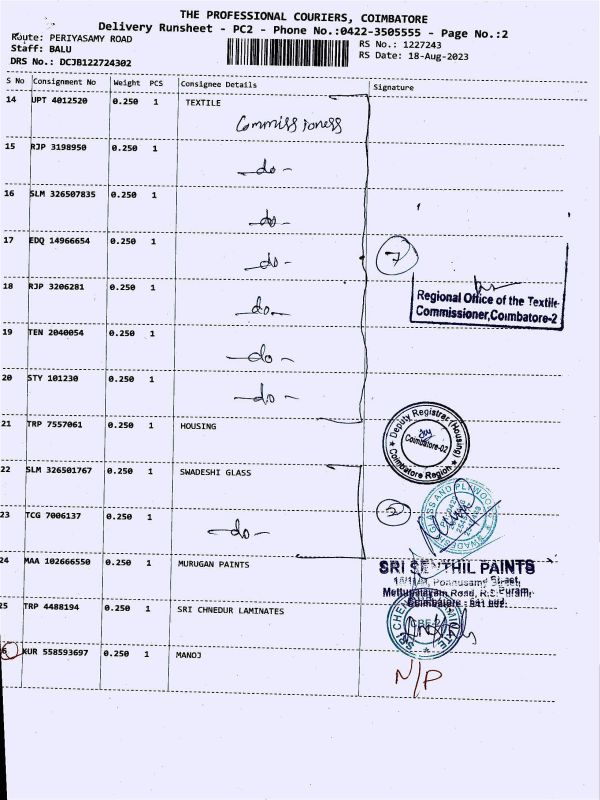 THE PROFESSIONAL COURIERS, COIMBATORE
Delivery Runsheet - PC2 - Phone No.:0422-3505555 - Page No.:2
Route: PERIYASAMY ROAD
Staff: BALU
DRS No.: DCJB122724302
RS No.: 1227243
RS Date: 18-Aug-2023
S No Consignment No Weight PCS Consignee Details Signature
14 UPT 4012520 0.250 1 TEXTILE
Commissioness
15 RJP 3198950 0.250 1
-do-
16 SLM 326507835 0.250 1
-do-
17 EDQ 14966654 0.250 1
-do-
7
Regional Office of the Textile
Commissioner, Coimbatore-2
18 RJP 3206281 0.250 1
-do-
19 TEN 2040054 0.250 1
-do-
20 STY 101230 0.250 1
-do-
21 TRP 7557061 0.250 1 HOUSING
Deputy Registrar (Housing)
Coimbatore-02
Coimbatore Region
22 SLM 326501767 0.250 1 SWADESHI GLASS
GLASS AND PLYWOOD
23 TCG 7006137 0.250 1
-do-
5
24 MAA 102666550 0.250 1 MURUGAN PAINTS
SRI SENTHIL PAINTS
Ponnusamy Street
Mettupalayam Road, R.S. Puram,
Coimbatore - 641 002.
25 TRP 4488194 0.250 1 SRI CHNEDUR LAMINATES
SRI
CBE-2
6 KUR 558593697 0.250 1 MANOJ
N/P